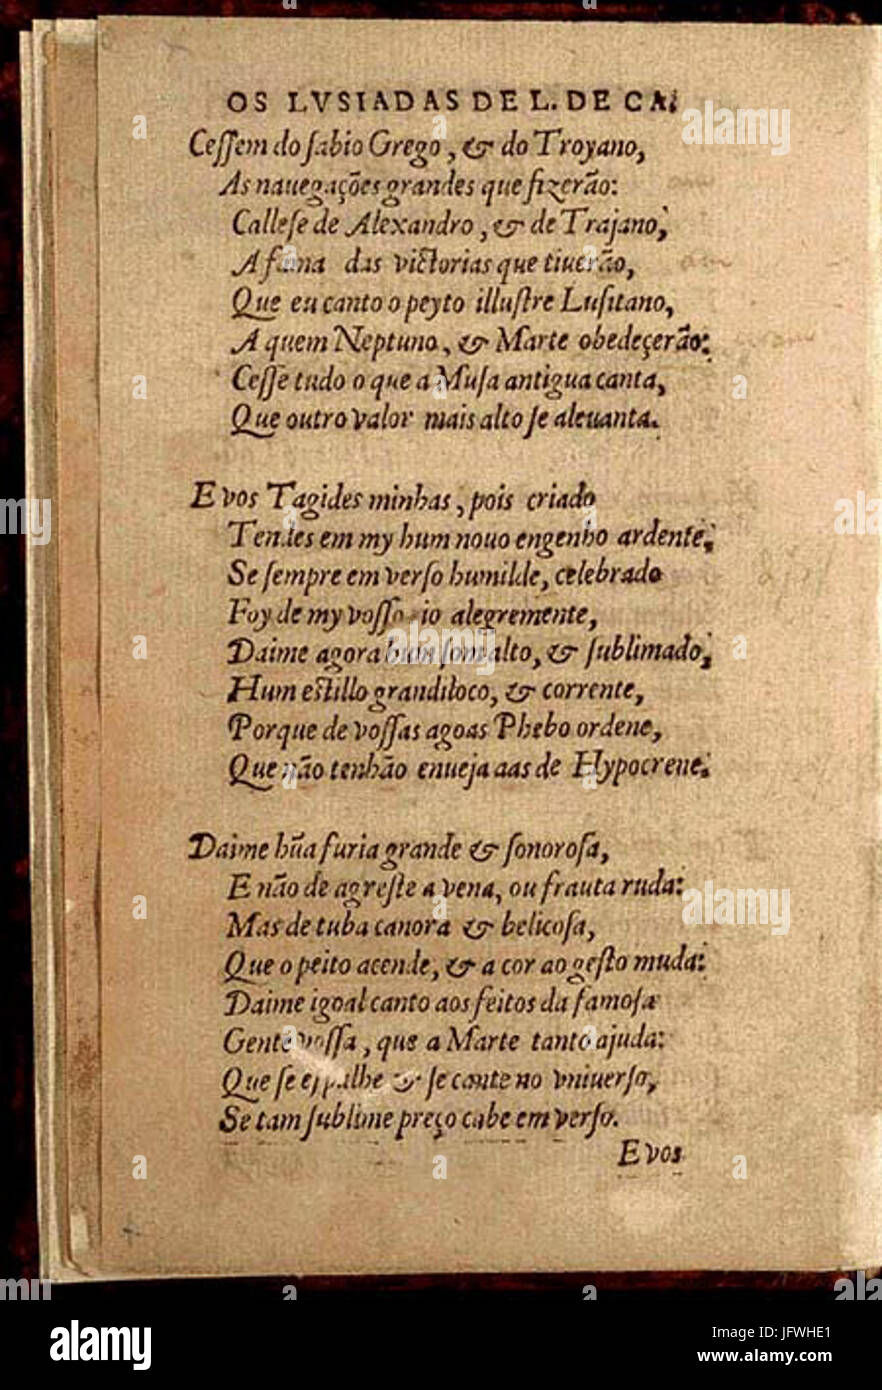 OS LVSIADAS DE L. DE CA.
Ceſſem do ſabio Grego, & do Troyano,
As nauegações grandes que fizerão:
Calleſe de Alexandro, & de Trajano,
A fama das victorias que tiuerão,
Que eu canto o peyto illuſtre Luſitano,
A quem Neptuno, & Marte obedeçerão:
Ceſſe tudo o que a Muſa antigua canta,
Que outro valor mais alto ſe aleuanta.
E vos Tagides minhas, pois criado
Tendes em my hum nouo engenho ardente,
Se ſempre em verſo humilde, celebrado
Foy de my voſſo rio alegremente,
Daime agora hum ſom alto, & ſublimado,
Hum eſtillo grandiloco, & corrente,
Porque de voſſas agoas Phebo ordene,
Que não tenhão enueja aas de Hypocrene.
Daime hũa furia grande & ſonoroſa,
E não de agreſte avena, ou frauta ruda:
Mas de tuba canora & belicoſa,
Que o peito acende, & a cor ao geſto muda:
Daime igoal canto aos feitos da famoſa
Gente voſſa, que a Marte tanto ajuda:
Que ſe eſpalhe & ſe cante no vniuerſo,
Se tam ſublime preço cabe em verſo.
E vos
alamy
Image ID: JFWHE1
www.alamy.com